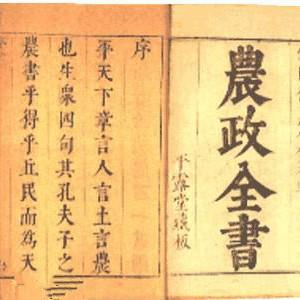 農政全書
平露堂藏板
序
平天下章言人言土言農
也生眾四句其孔夫子之
農書乎得乎丘民而為天